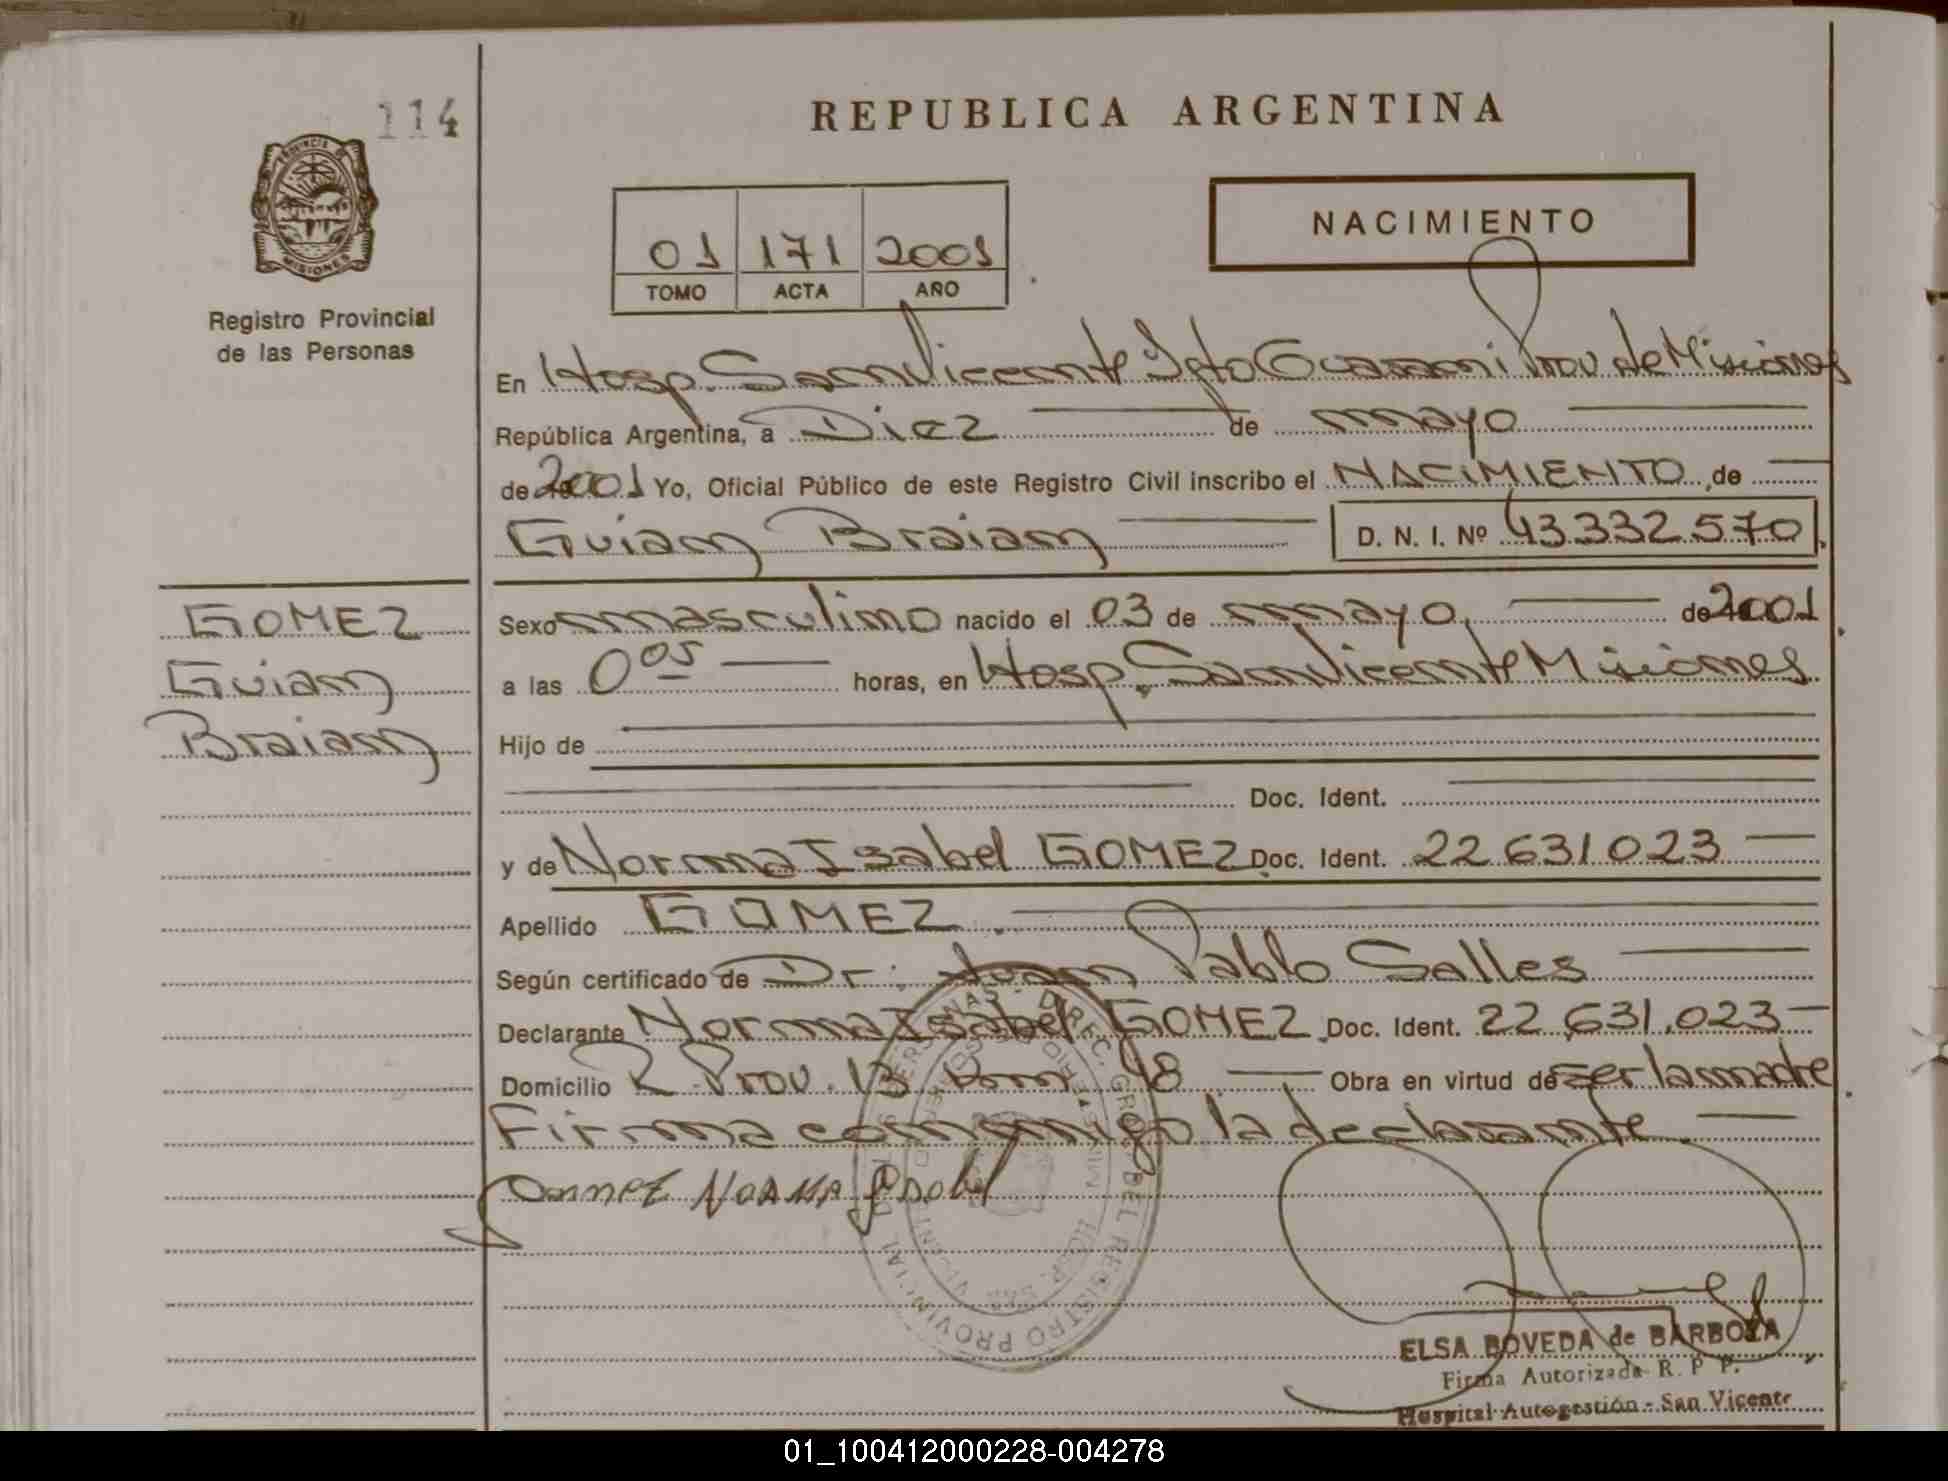 114
REPUBLICA ARGENTINA
PROVINCIA DE
MISIONES
Registro Provincial
de las Personas
01 171 2001
TOMO ACTA AÑO
NACIMIENTO
En Hosp. San Vicente Dpto Guarani Prov de Misiones
República Argentina, a Diez de mayo
de 2001 Yo, Oficial Público de este Registro Civil inscribo el NACIMIENTO, de
Guian Braian D. N. I. Nº 43.332.570
GOMEZ
Guian
Braian
Sexo masculino nacido el 03 de mayo de 2001
a las 0 05 horas, en Hosp. San Vicente Misiones
Hijo de
Doc. Ident.
y de Norma Isabel GOMEZ Doc. Ident. 22 631 023
Apellido GOMEZ
Según certificado de Dr. Juan Pablo Salles
Declarante Norma Isabel GOMEZ Doc. Ident. 22.631.023
Domicilio R. Prov. 13 Km 48 Obra en virtud de ser la madre
Firma conmigo la declarante
Gomez NORMA Isabel
REGISTRO PROVINCIAL DE LAS PERSONAS - DIREC. GRAL. DEL
ELSA BOVEDA de BARBOZA
Firma Autorizada R. P P.
Hospital Autogestión - San Vicente
01_100412000228-004278